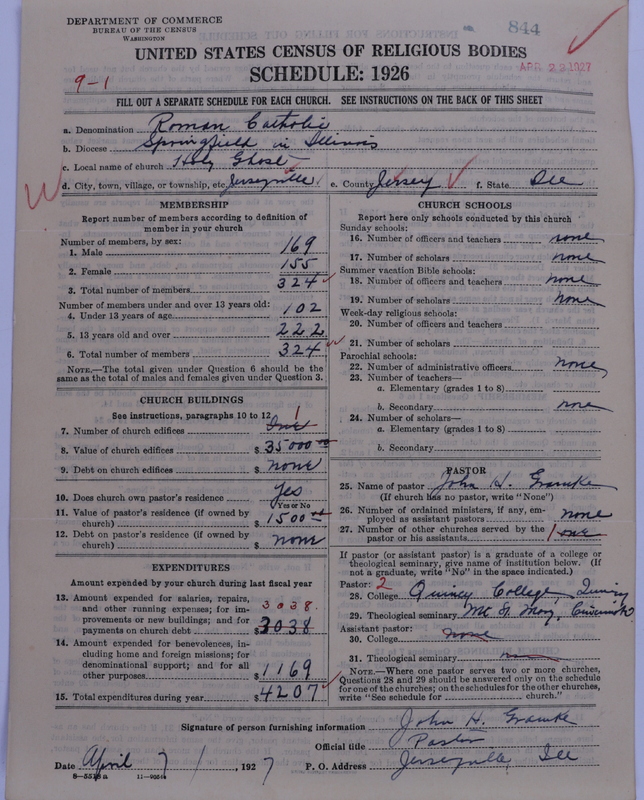 DEPARTMENT OF COMMERCE
BUREAU OF THE CENSUS
WASHINGTON
844
UNITED STATES CENSUS OF RELIGIOUS BODIES
SCHEDULE: 1926
APR 22 1927
9-1
FILL OUT A SEPARATE SCHEDULE FOR EACH CHURCH. SEE INSTRUCTIONS ON THE BACK OF THIS SHEET
a. Denomination Roman Catholic
b. Diocese Springfield in Illinois
c. Local name of church Holy Ghost
d. City, town, village, or township, etc. Jerseyville e. County Jersey f. State Ill
MEMBERSHIP
Report number of members according to definition of member in your church
Number of members, by sex:
1. Male 169
2. Female 155
3. Total number of members 324
Number of members under and over 13 years old:
4. Under 13 years of age 102
5. 13 years old and over 222
6. Total number of members 324
NOTE.—The total given under Question 6 should be the same as the total of males and females given under Question 3.
CHURCH BUILDINGS
See instructions, paragraphs 10 to 12
7. Number of church edifices One 1
8. Value of church edifices $ 35000 00
9. Debt on church edifices $ none
10. Does church own pastor's residence Yes
Yes or No
11. Value of pastor's residence (if owned by church) $ 1500 00
12. Debt on pastor's residence (if owned by church) $ none
EXPENDITURES
Amount expended by your church during last fiscal year
13. Amount expended for salaries, repairs, and other running expenses; for improvements or new buildings; and for payments on church debt 3038. $ 3038
14. Amount expended for benevolences, including home and foreign missions; for denominational support; and for all other purposes $ 1169
15. Total expenditures during year $ 4207
CHURCH SCHOOLS
Report here only schools conducted by this church
Sunday schools:
16. Number of officers and teachers none
17. Number of scholars none
Summer vacation Bible schools:
18. Number of officers and teachers none
19. Number of scholars none
Week-day religious schools:
20. Number of officers and teachers
21. Number of scholars
Parochial schools:
22. Number of administrative officers none
23. Number of teachers—
a. Elementary (grades 1 to 8)
b. Secondary none
24. Number of scholars—
a. Elementary (grades 1 to 8)
b. Secondary
PASTOR
25. Name of pastor John H.
(If church has no pastor, write "None")
26. Number of ordained ministers, if any, employed as assistant pastors none
27. Number of other churches served by the pastor or his assistants 1 one
If pastor (or assistant pastor) is a graduate of a college or theological seminary, give name of institution below. (If not a graduate, write "No" in the space indicated.)
Pastor: 2
28. College Quincy College Quincy
29. Theological seminary Mt St. Mary,
Assistant pastor:
30. College none
31. Theological seminary none
NOTE.—Where one pastor serves two or more churches, Questions 28 and 29 should be answered only on the schedule for one of the churches; on the schedules for the other churches, write "See schedule for church."
Signature of person furnishing information John H.
Official title Pastor
Date April 7, 1927 P. O. Address Jerseyville, Ill
8-5518 a